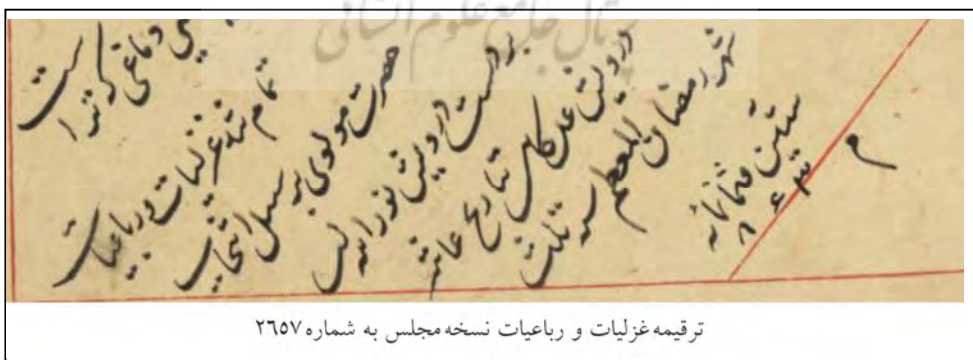 پرتال جامع علوم انسانی
تمام شد غزلیات و رباعیات
حضرت مولوی بر سبیل انتخاب
بر دست درویش نوراله بن
درویش علی کاتب بتاریخ عاشر
شهر رمضان المعظم سنه ثلث
ستین و ثمانمائه
۸۶۳
م
ترقیمه غزلیات و رباعیات نسخه مجلس به شماره ۲۶۵۷